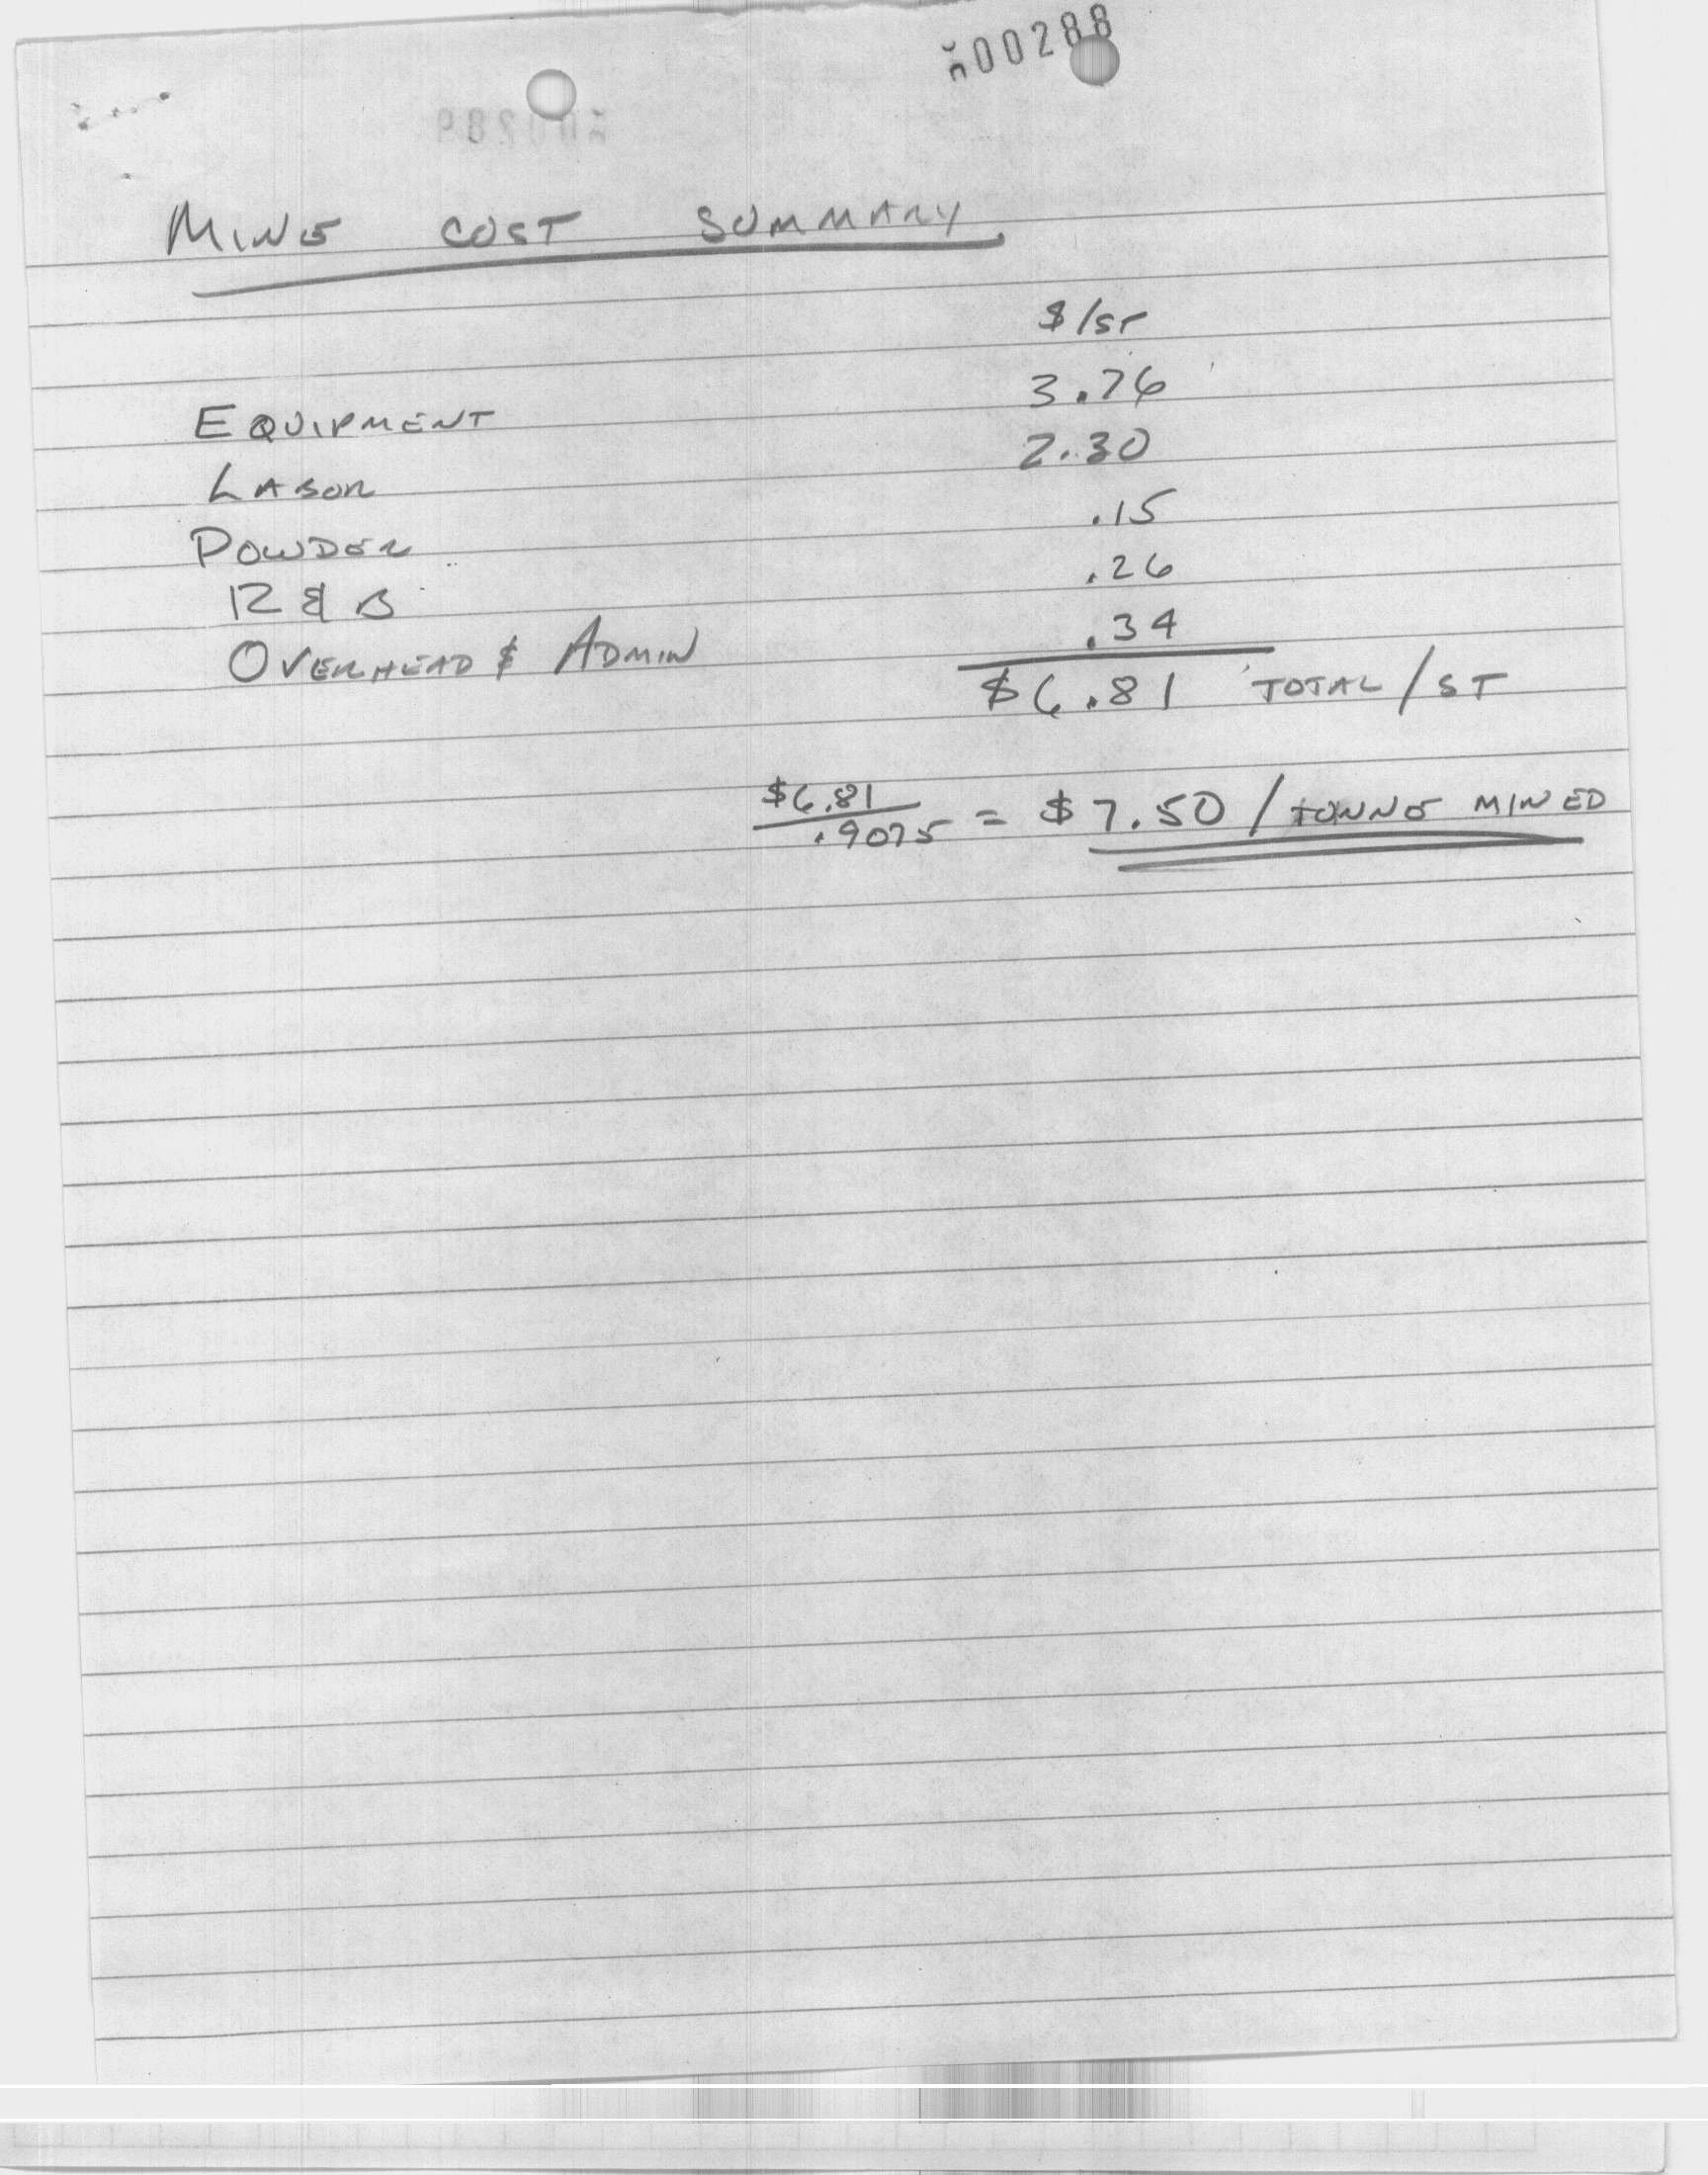 00288
MINE COST SUMMARY
$/ST
EQUIPMENT 3.76
LABOR 2.30
POWDER .15
R & B .26
OVERHEAD & ADMIN .34
$6.81 TOTAL/ST
$6.81
.9075 = $7.50 / TONNE MINED